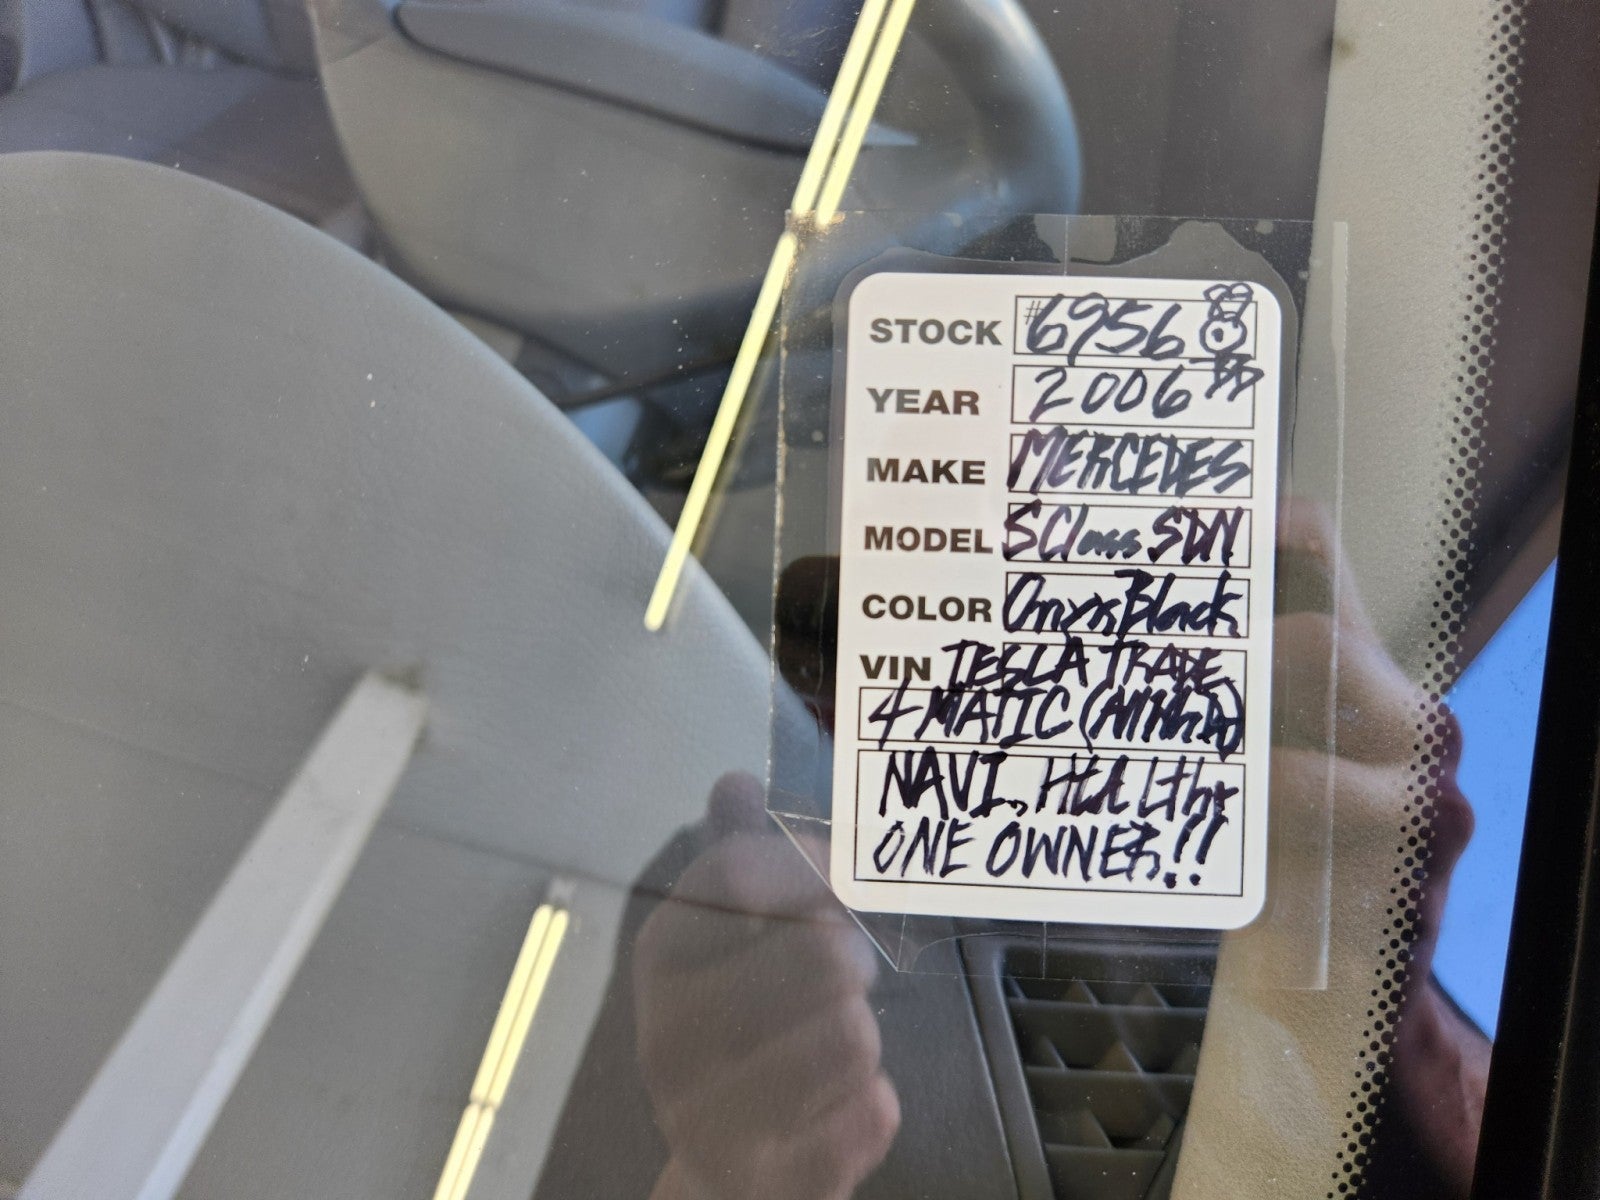 STOCK #6956
YEAR 2006
MAKE MERCEDES
MODEL S Class SDN
COLOR Onyx Black
VIN TESLA TRADE
4 MATIC (AWD)
NAVI, HEALthy
ONE OWNER!!